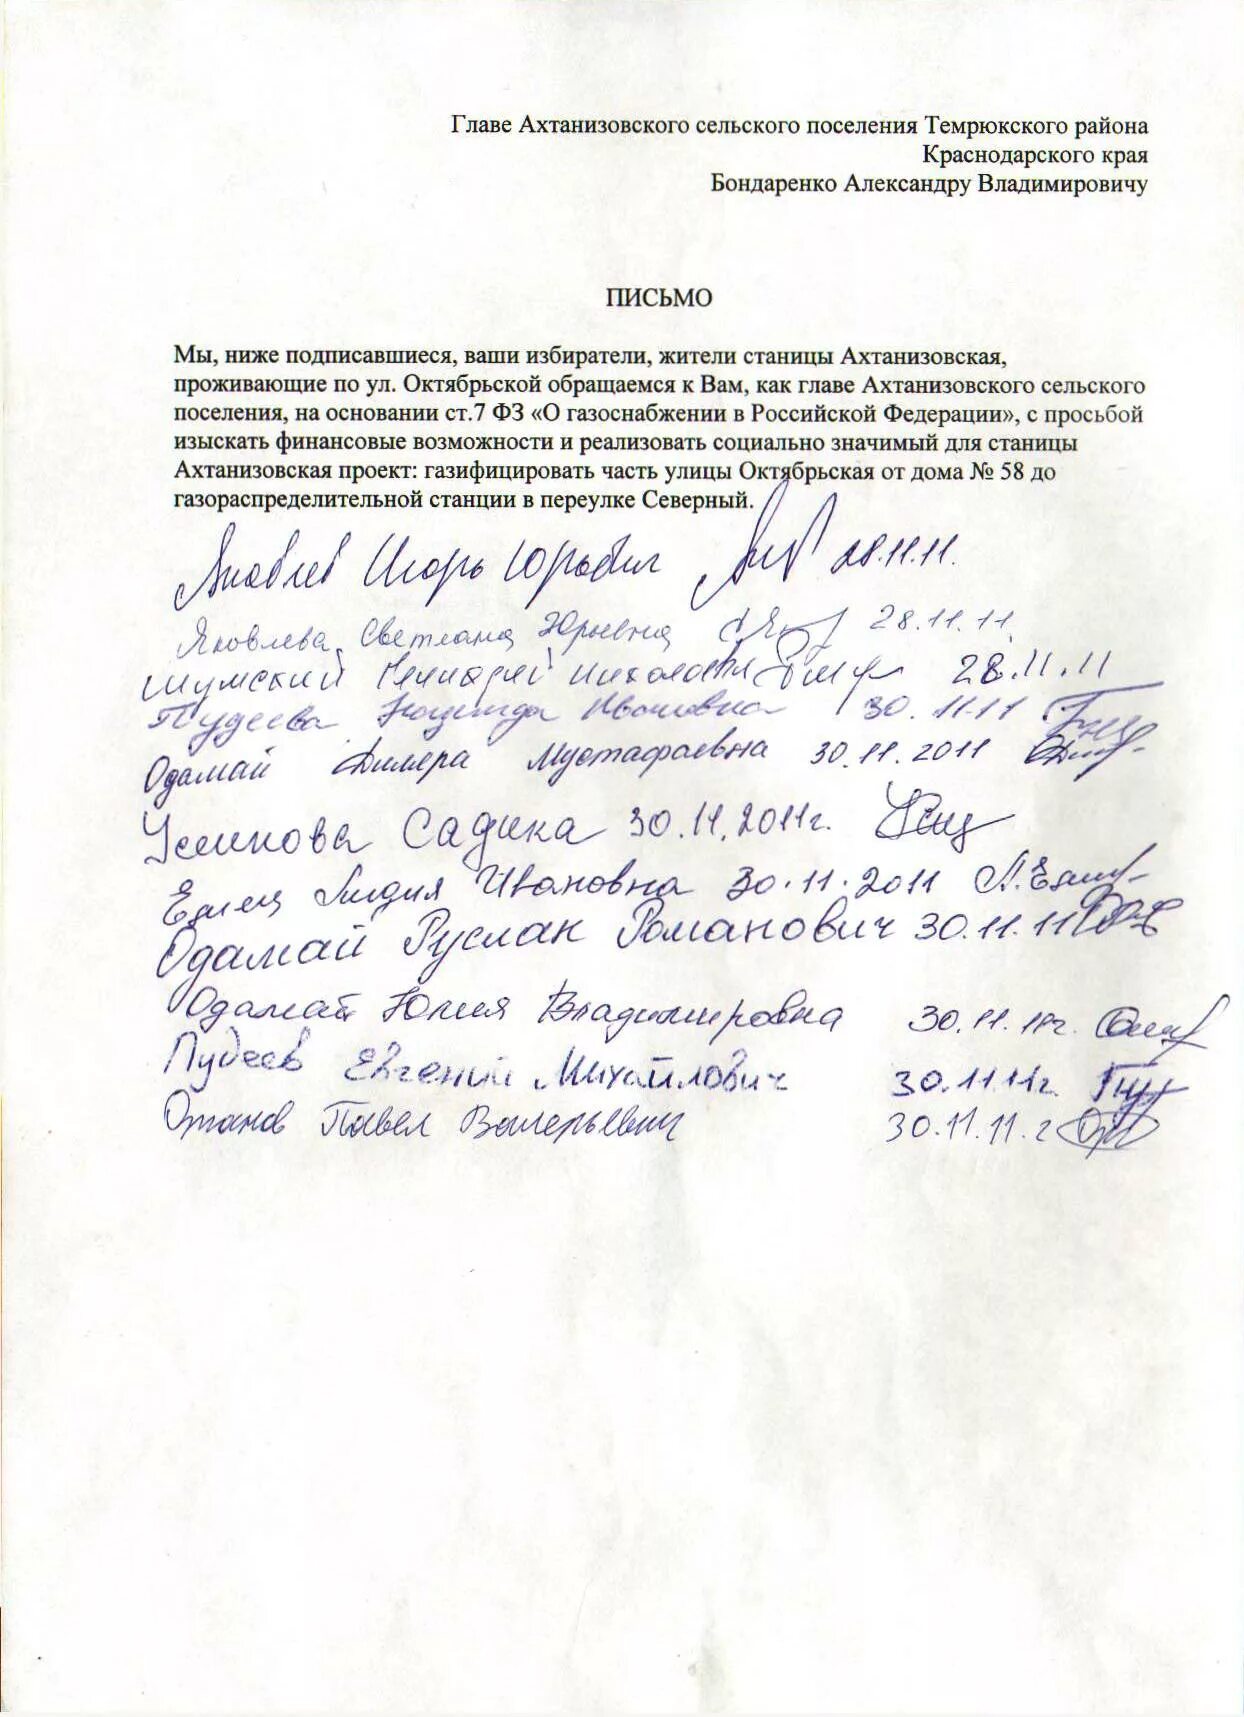 Главе Ахтанизовского сельского поселения Темрюкского района
Краснодарского края
Бондаренко Александру Владимировичу
ПИСЬМО
Мы, ниже подписавшиеся, ваши избиратели, жители станицы Ахтанизовская,
проживающие по ул. Октябрьской обращаемся к Вам, как главе Ахтанизовского сельского
поселения, на основании ст.7 ФЗ «О газоснабжении в Российской Федерации», с просьбой
изыскать финансовые возможности и реализовать социально значимый для станицы
Ахтанизовская проект: газифицировать часть улицы Октябрьская от дома № 58 до
газораспределительной станции в переулке Северный.
Яковлев Игорь Юрьевич 28.11.11.
Яковлева Светлана Юрьевна 28.11.11.
Шумский Геннадий Николаевич 28.11.11
Пудеева Надежда Ивановна 30.11.11
Одамай Диляра Мустафаевна 30.11.2011
Усминова Садика 30.11.2011г.
Елец Лидия Ивановна 30.11.2011
Одамай Руслан Романович 30.11.11
Одамай Юлия Владимировна 30.11.11г.
Пудеев Евгений Михайлович 30.11.11г.
Павел Валерьевич 30.11.11.г